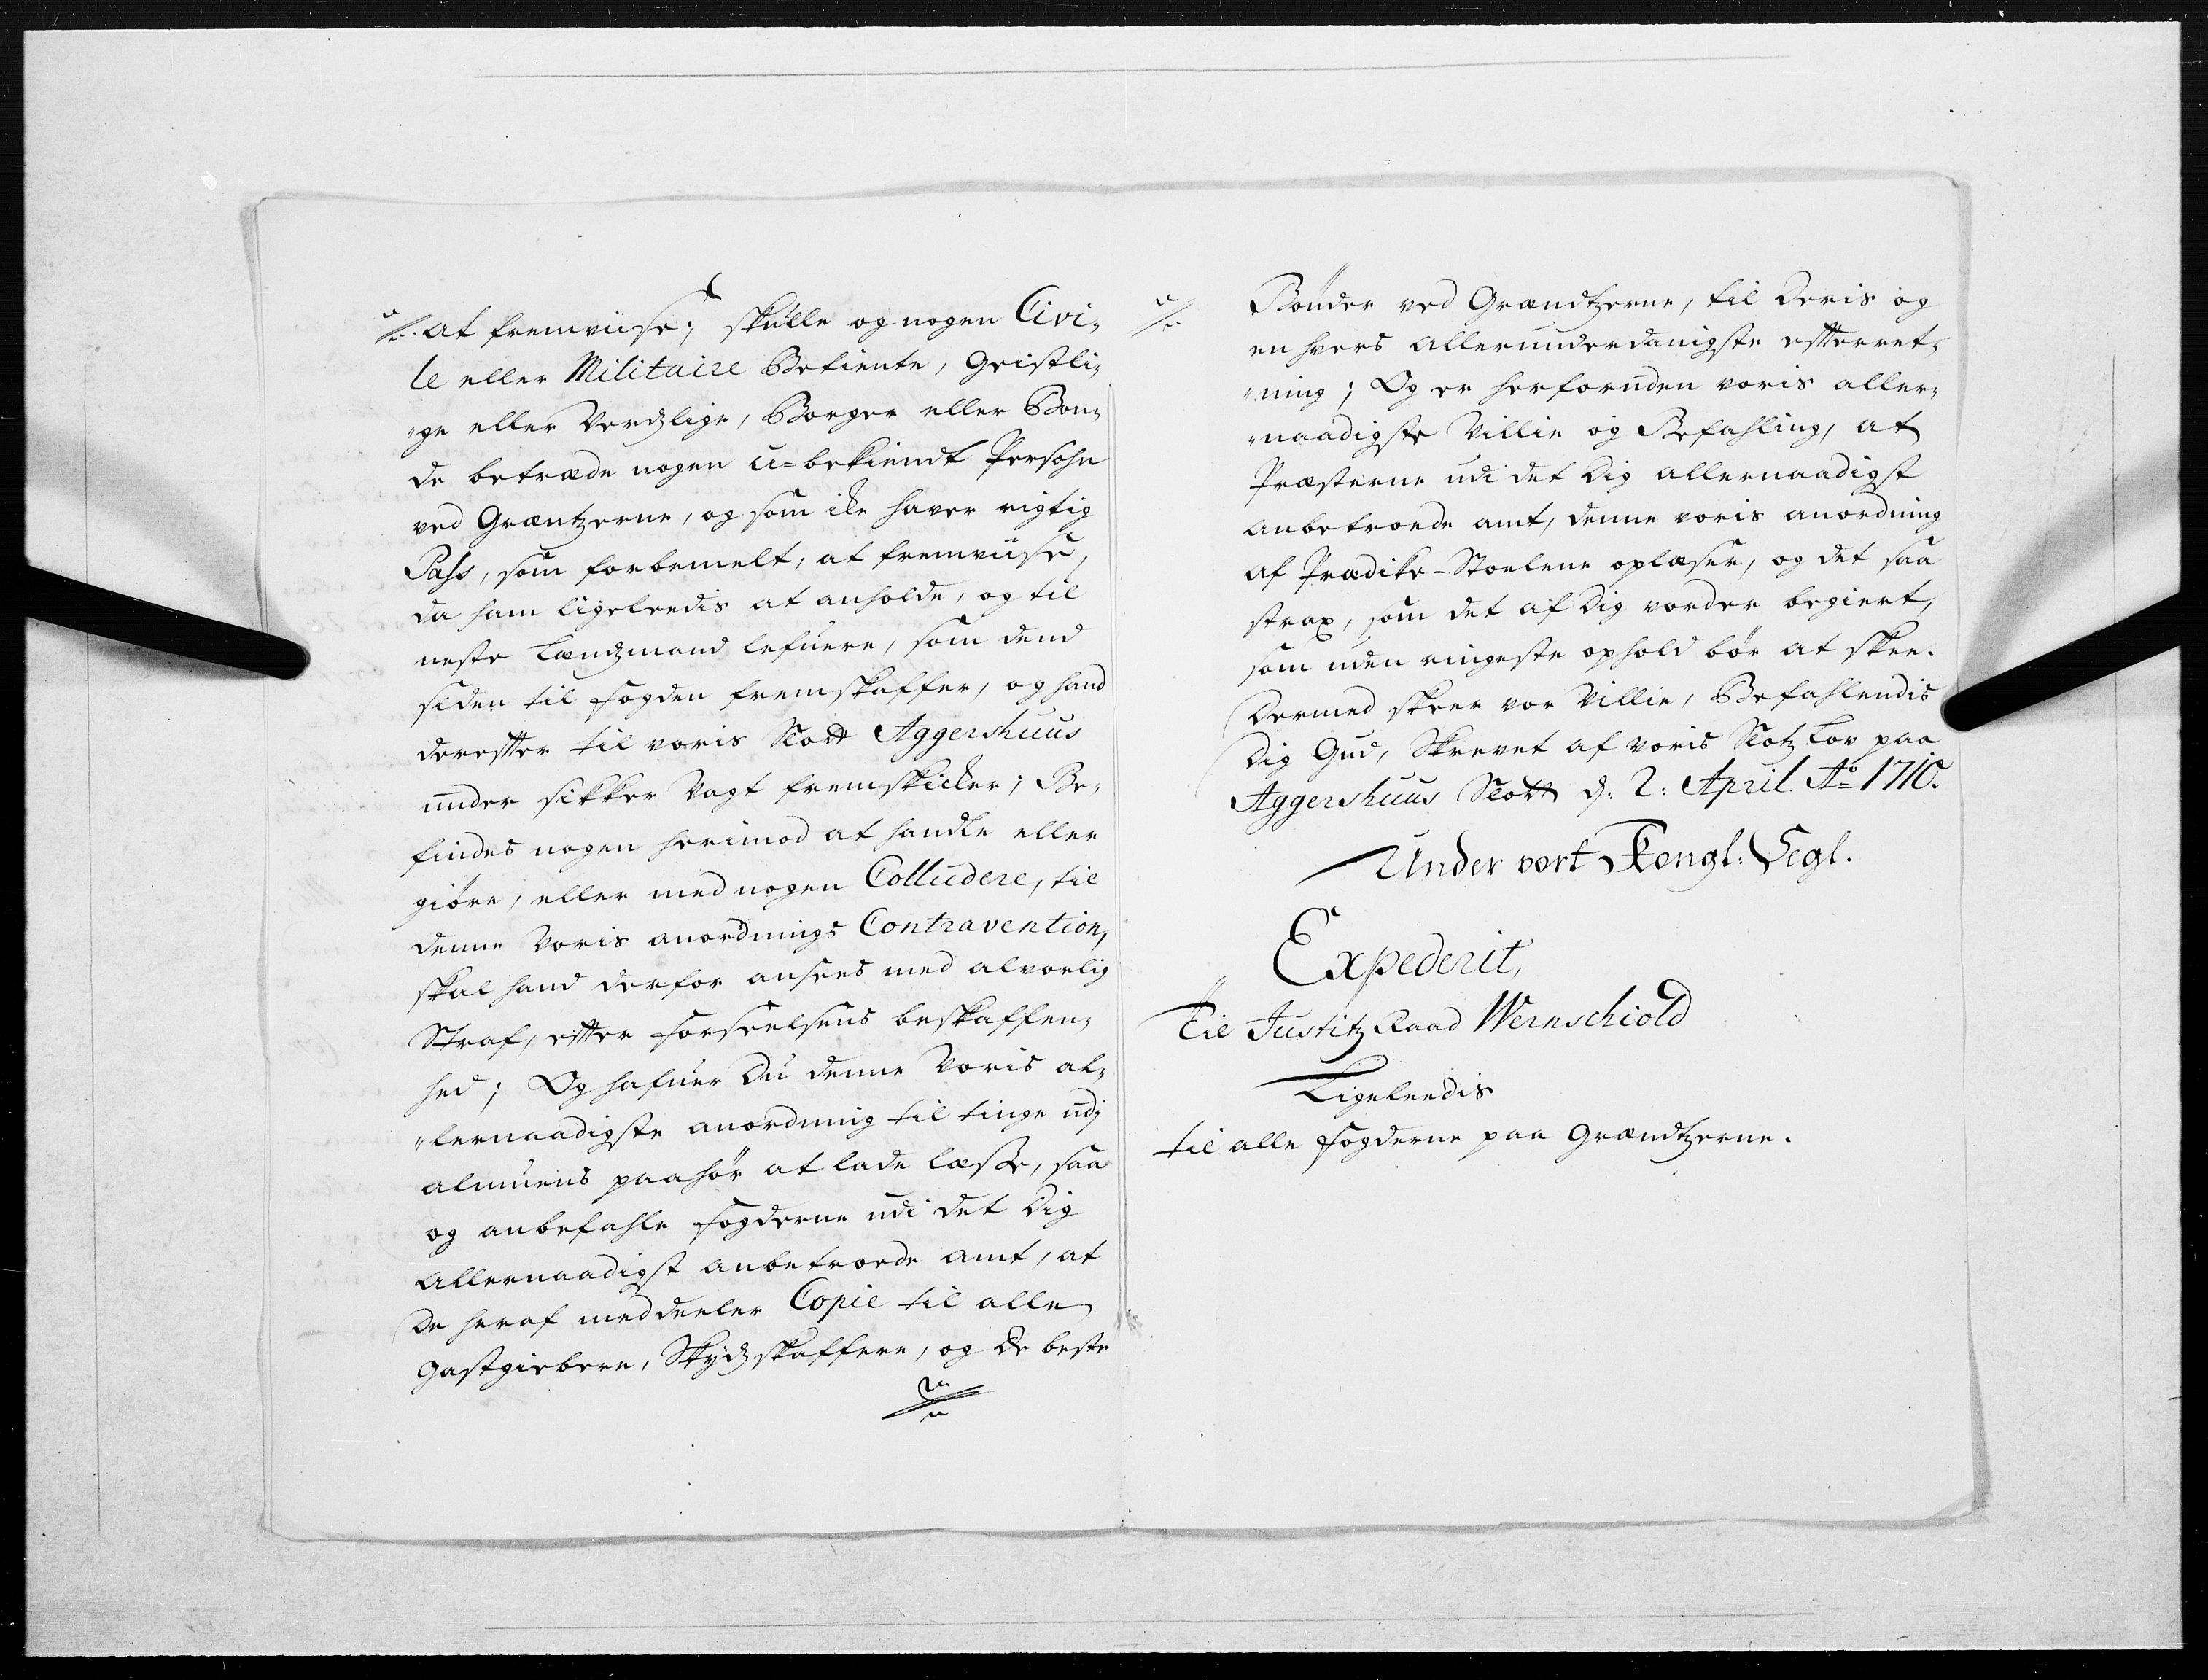 at fremviise; skulle og nogen Civi-
le eller Militaire Betiente, Geistli-
"ge eller Verdslige, Borger eller Bon-
de betræde nogen u-bekiendt Persohn
ved Græntzerne, og som icke haver rigtig
Pass, som forbemelt, at fremviise,
da ham ligeleedis at anholde, og til
neste Lændzmand lefuere, som dend
siden til fogden fremskaffer, og hand
derefter til voris Slott Aggershuus
under sikker Vagt fremskicker; Be-
findes nogen herimod at handle eller
giöre, eller med nogen Colludere, til
denne Voris anordnings Contravention,
skal hand derfor ansees med alvorlig
Straf, efter forseelsens beskaffen-
hed; Og hafuer Du denne Voris al-
"lernaadigste anordning til tinge udj
almuens paahör at lade læse, saa
og anbefahle fogderne udi det Dig
allernaadigst anbetroede amt, at
De heraf meddeeler Copie til alle
gastgiebere, Skydzskaffere, og de beste
Bönder ved Grændtzerne, til deris og
en hvers allerunderdanigste efterret-
"ning; Og er herforuden voris aller-
"naadigste Villie og Befahling, at
Præsterne udi det Dig allernaadigst
anbetroede amt, denne voris anordning
af Prædike-Stoelene oplæser, og det saa
strax, som det af Dig vorder begiert,
som uden ringeste ophold bör at skee.
Dermed skeer vor Villie, Befahlendis
Dig Gud, Skrevet af voris Slotz Lov paa
Aggershuus Slott d: 2: April Ao 1710.
Under vort Kongl: Segl.
Expederit,
Til Justitz Raad Wernschiold
Ligeleedis
til alle fogderne paa Grændtzerne.